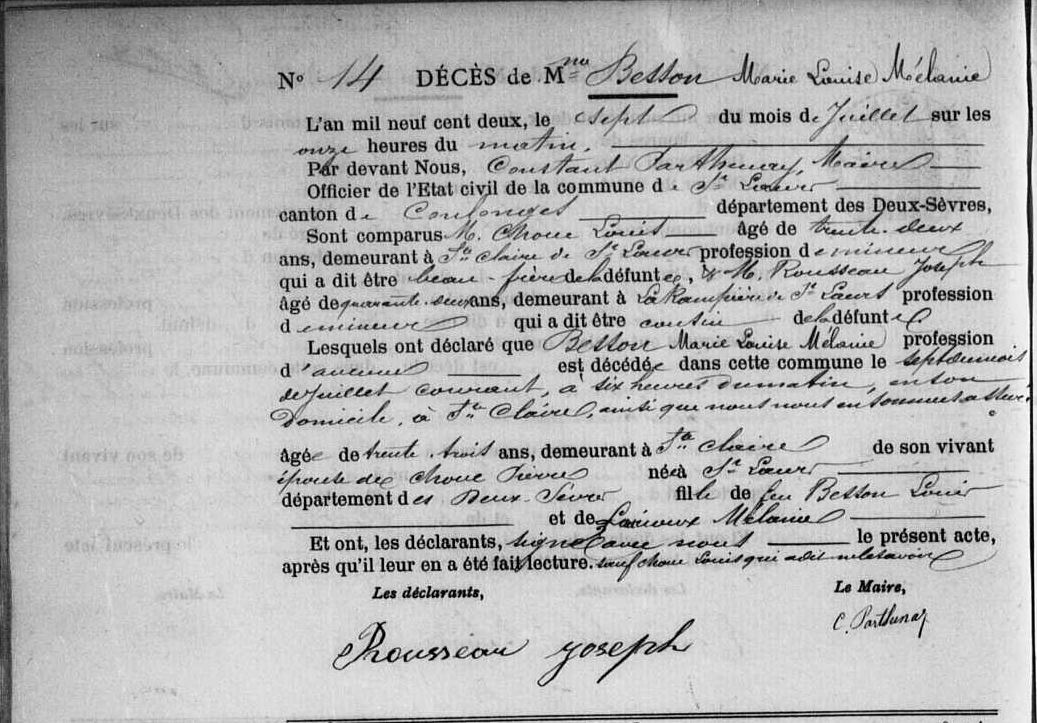 N° 14 DÉCÈS de Mme Besson Marie Louise Mélanie
L'an mil neuf cent deux, le sept du mois de Juillet sur les
onze heures du matin.
Par devant Nous, Constant Parthenay, Maire
Officier de l'Etat civil de la commune de St Laurs
canton de Coulonges département des Deux-Sèvres,
Sont comparus M. Choue Louis âgé de trente-deux
ans, demeurant à Ste Claire de St Laurs profession de mineur
qui a dit être beau-frère de la défunte, & M. Rousseau Joseph
âgé de quarante-deux ans, demeurant à La Rampière de St Laurs profession
de mineur qui a dit être cousin de la défunte
Lesquels ont déclaré que Besson Marie Louise Mélanie profession
d'aucune est décédée dans cette commune le sept du mois
de Juillet courant, à six heures du matin, en son
domicile, à Ste Claire, ainsi que nous nous en sommes assuré.
âgée de trente-trois ans, demeurant à Ste Claire de son vivant
épouse de Choue Pierre née à St Laurs
département des Deux-Sèvres fille de feu Besson Louis
et de Mélanie
Et ont, les déclarants, signé avec nous le présent acte,
après qu'il leur en a été fait lecture. sauf Choue Louis qui a dit ne le savoir
Les déclarants, Le Maire,
C. Parthenay
Rousseau Joseph